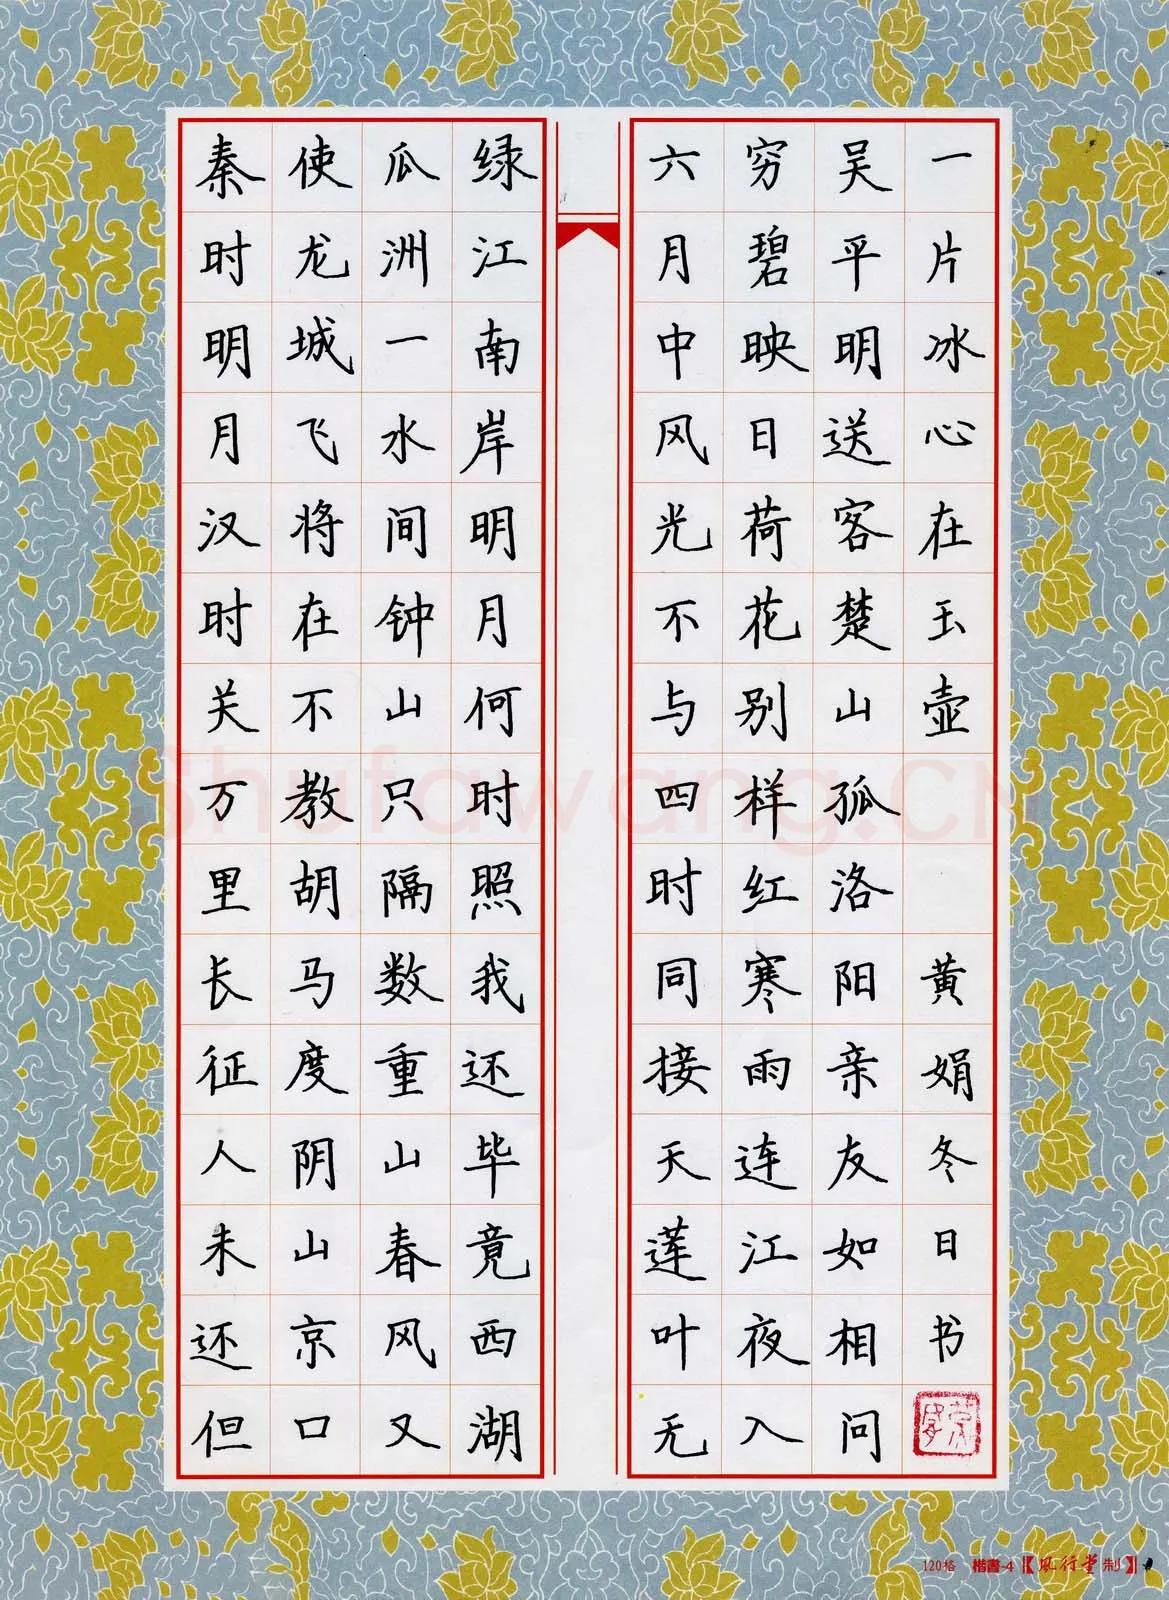 秦时明月汉时关万里长征人未还但
使龙城飞将在不教胡马度阴山京口
瓜洲一水间钟山只隔数重山春风又
绿江南岸明月何时照我还毕竟西湖
六月中风光不与四时同接天莲叶无
穷碧映日荷花别样红寒雨连江夜入
吴平明送客楚山孤洛阳亲友如相问
一片冰心在玉壶 黄娟冬日书
Shufawang.CN
120格 楷書-4【風行堂制】